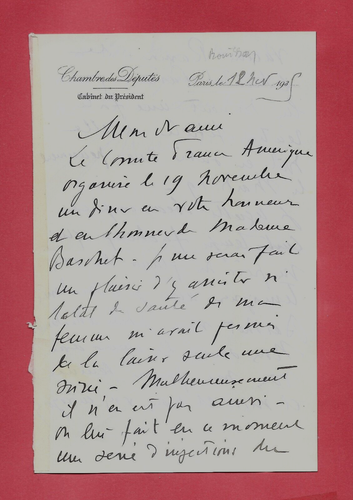 Chambre des Députés
Cabinet du Président
Paris, le 12 Nov 1925
Mon cher ami
Le Comité France Amérique
organise le 19 novembre
un diner en votre honneur
et en l'honneur de Madame
Baschet - je me serai fait
un plaisir d'y assister si
l'état de santé de ma
femme m'avait permis
de la laisser seule une
soirée - Malheureusement
il n'en est pas ainsi -
on lui fait en ce moment
une série d'injections du